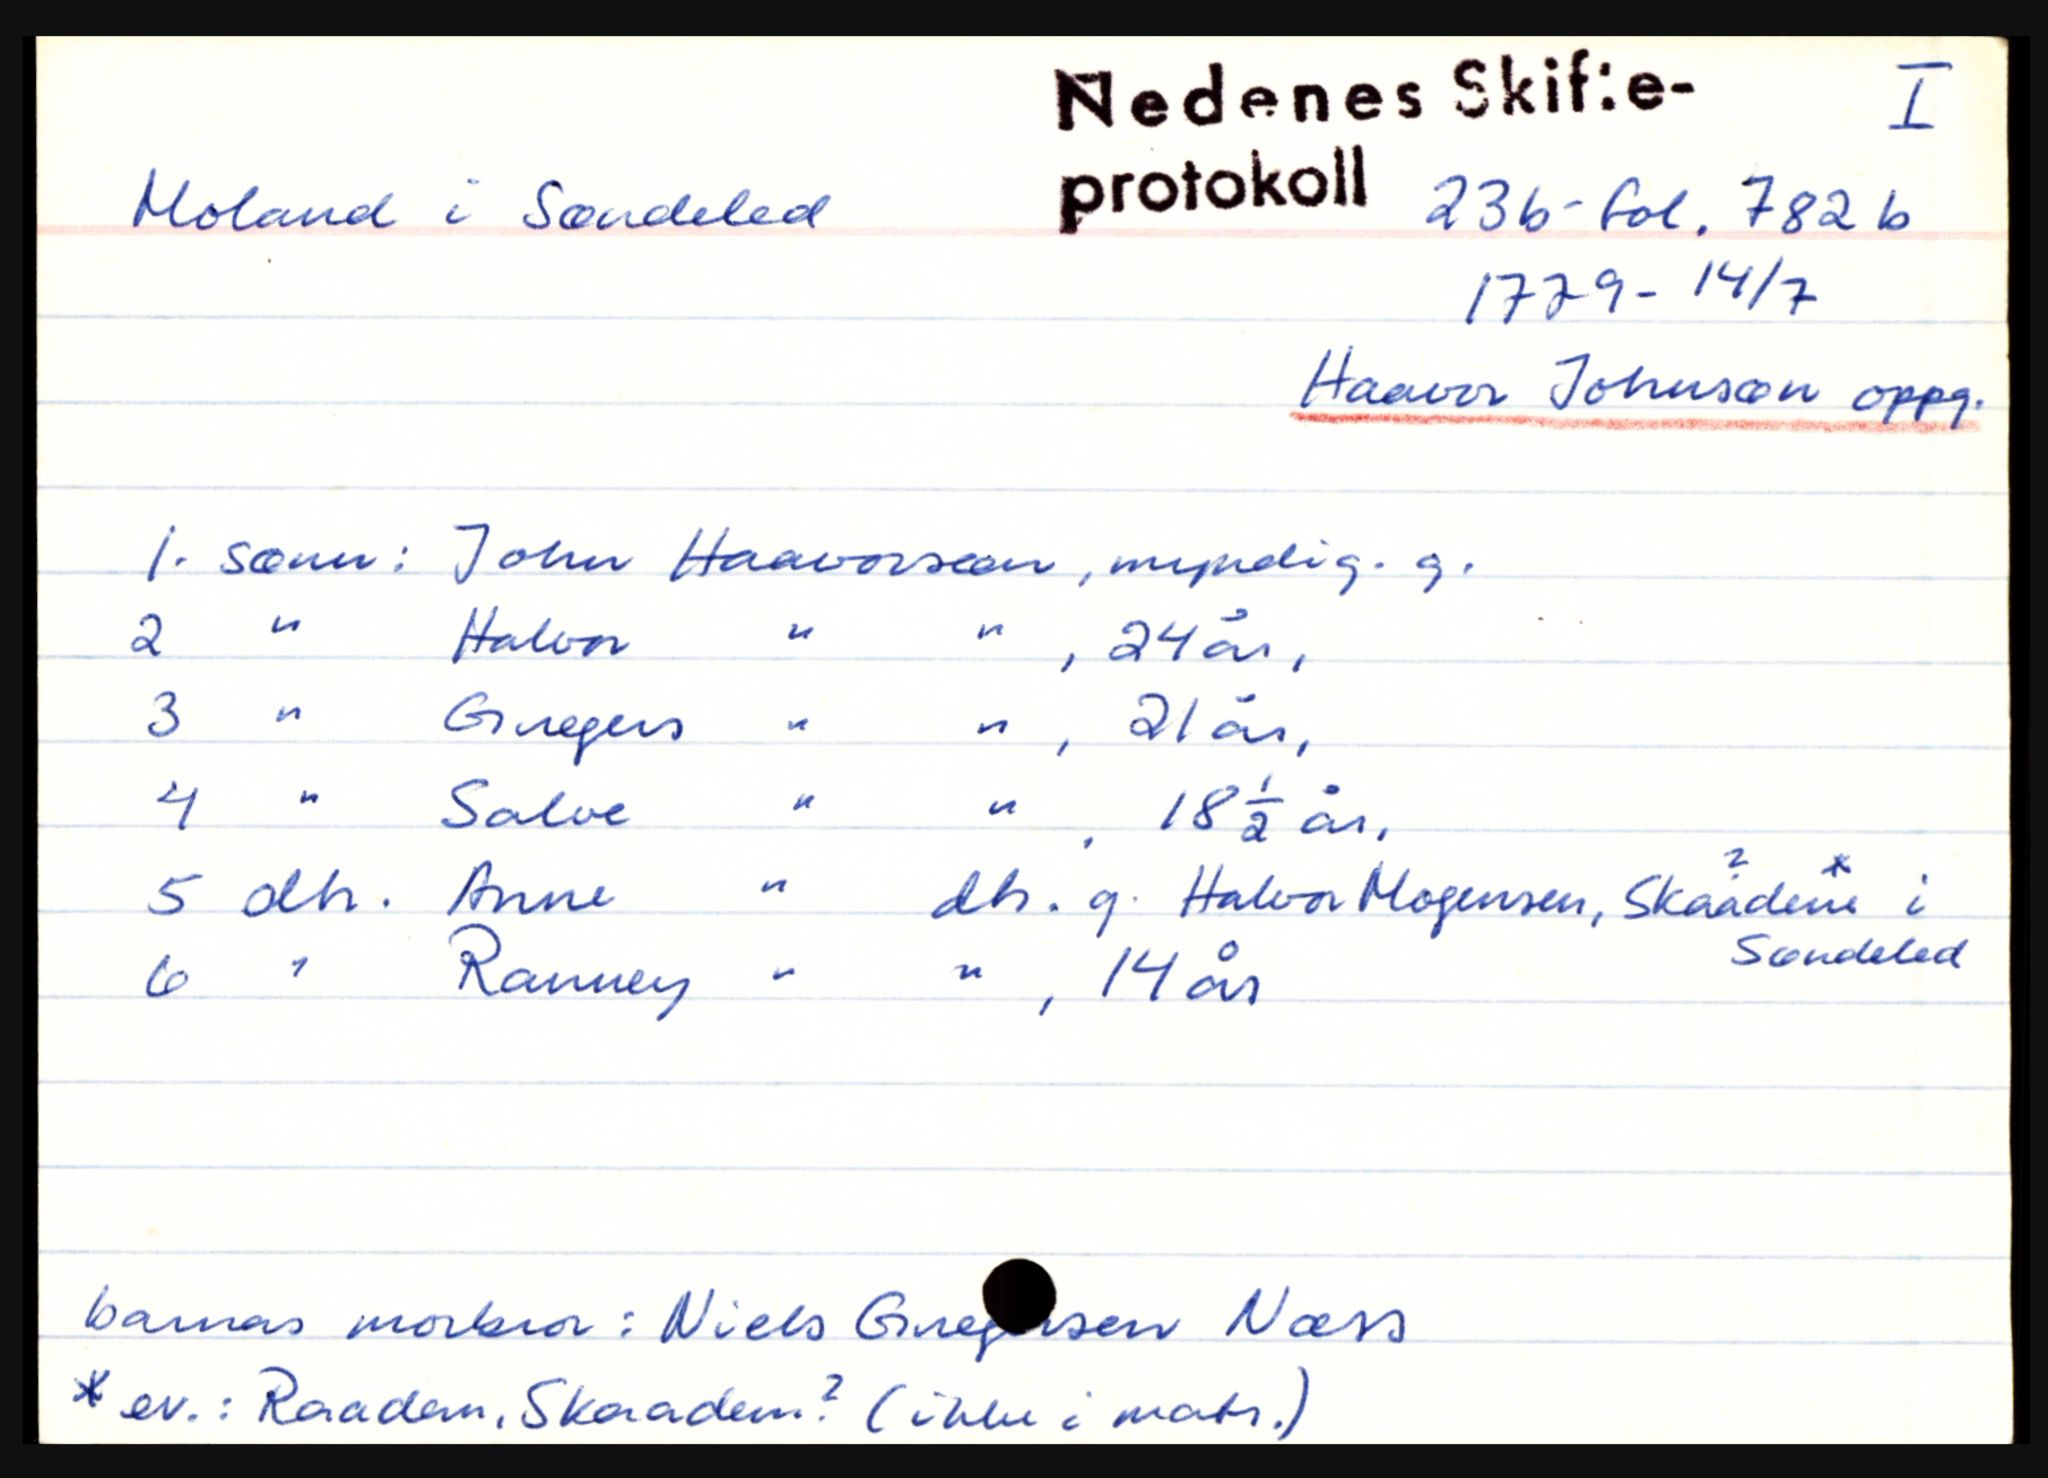 Nedenes Skifte- I
protokoll
Moland i Søndeled 23b - fol. 782 b
1779 - 14/7
Haavor Johnsøn oppg.
1. sønn: John Haavorsøn, myndig. g.
2 " Halvor " ", 24 år,
3 " Gregers " ", 21 år,
4 " Salve " ", 18 1/2 år,
5 dtr. Anne " dtr. g. Halvor Mogensen, Skaadene ? * i
Søndeled
6 " Ranney " ", 14 år
barnas morbror: Niels Gregersen Næss
* ev.: Raaden, Skaaden? (ikke i matr.)